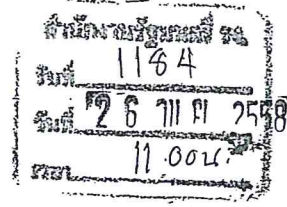 สำนักงานรัฐมนตรี
รับที่ 1184
วันที่ 26
เวลา 11.00 น.